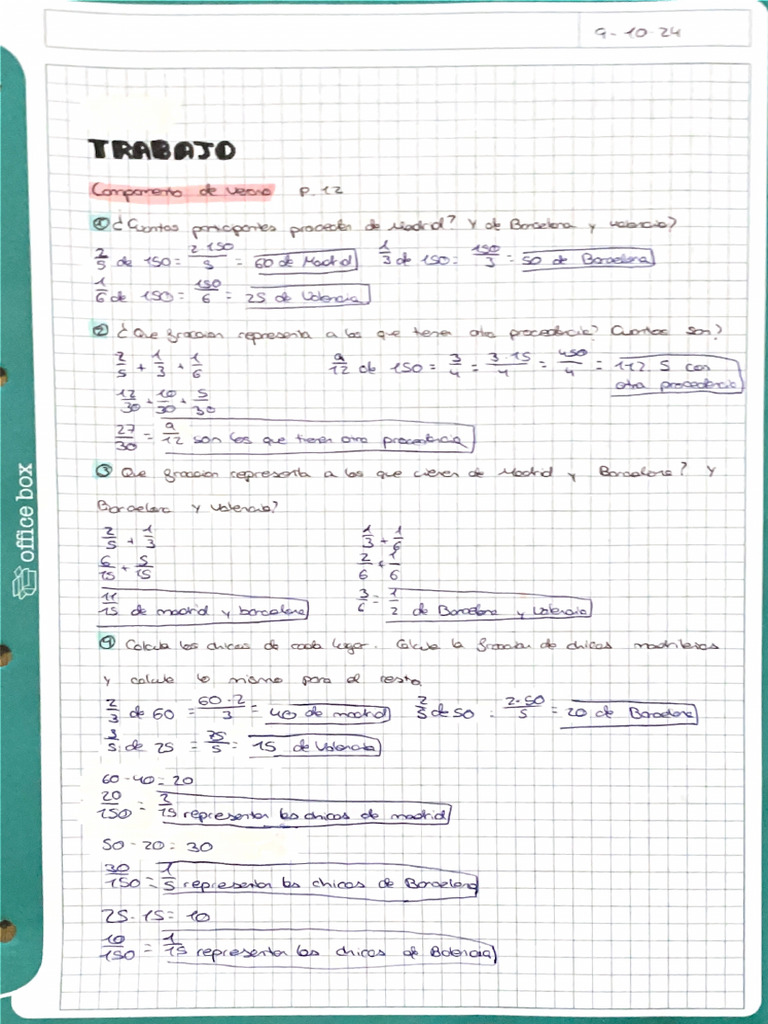 9-10-24
TRABAJO
Campamento de verano p. 12
① ¿Cuantos participantes proceden de Madrid? Y de Barcelona y Valencia?
2/5 de 150 = 2·150/5 = 60 de Madrid 1/3 de 150 = 150/3 = 50 de Barcelona
1/6 de 150 = 150/6 = 25 de Valencia
② ¿Que fraccion representa a los que tienen otra procedencia? Cuantos son?
2/5 + 1/3 + 1/6 9/12 de 150 = 3/4 = 3·15/4 = 450/4 = 112.5 con
otra procedencia
12/30 + 10/30 + 5/30
27/30 = 9/12 son los que tienen otra procedencia
③ Que fraccion representa a los que vienen de Madrid y Barcelona? Y
Barcelona y Valencia?
2/5 + 1/3 1/3 + 1/6
6/15 + 5/15 2/6 + 1/6
11/15 de madrid y barcelona 3/6 = 1/2 de Barcelona y Valencia
④ Calcula los chicos de cada lugar. Calcula la fraccion de chicas madrileñas
y calcula lo mismo para el resto
2/3 de 60 = 60·2/3 = 40 de madrid 2/5 de 50 = 2·50/5 = 20 de Barcelona
3/5 de 25 = 75/5 = 15 de Valencia
60-40=20
20/150 = 2/15 representan las chicas de madrid
50-20=30
30/150 = 1/5 representan las chicas de Barcelona
25-15=10
10/150 = 1/15 representan las chicas de Balencia
office box